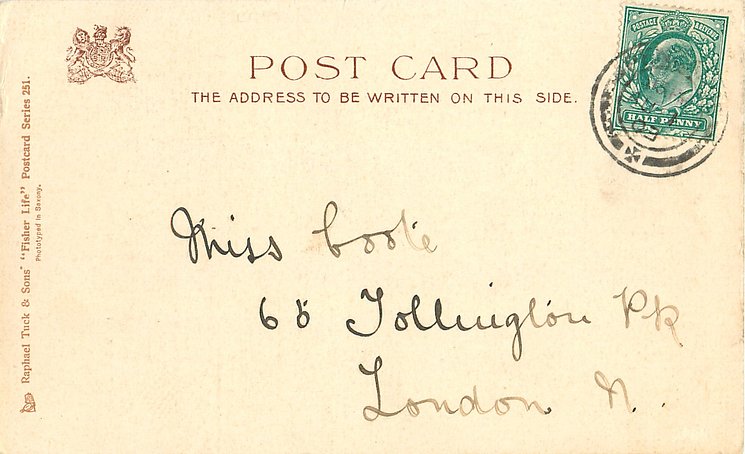 POST CARD
THE ADDRESS TO BE WRITTEN ON THIS SIDE.
POSTAGE REVENUE
HALF PENNY
Raphael Tuck & Sons' "Fisher Life" Postcard Series 251.
Phototyped in Saxony.
Miss Coote
65 Tollington Pk
London N.